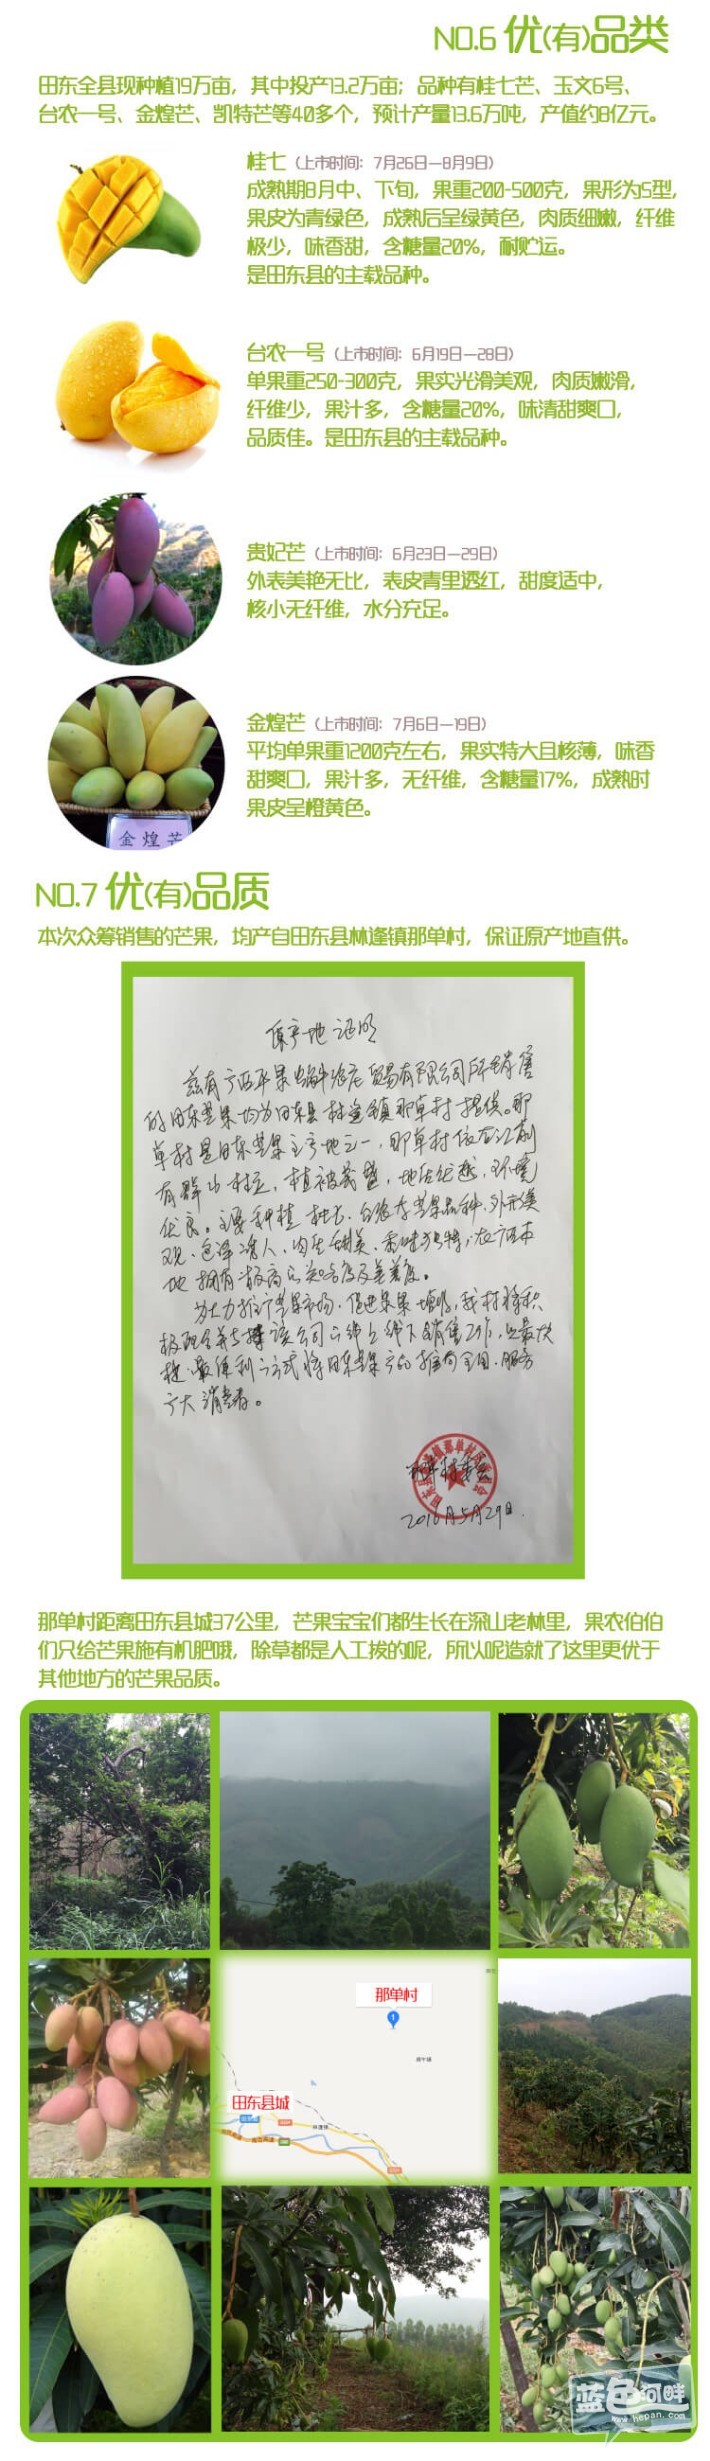 NO.6 优(有)品类
田东全县现种植19万亩，其中投产13.2万亩；品种有桂七芒、玉文6号、
台农一号、金煌芒、凯特芒等40多个，预计产量13.6万吨，产值约8亿元。
桂七（上市时间：7月26日—8月9日）
成熟期8月中、下旬，果重200-500克，果形为S型，
果皮为青绿色，成熟后呈绿黄色，肉质细嫩，纤维
极少，味香甜，含糖量20%，耐贮运。
是田东县的主载品种。
台农一号（上市时间：6月19日—28日）
单果重250-300克，果实光滑美观，肉质嫩滑，
纤维少，果汁多，含糖量20%，味清甜爽口，
品质佳。是田东县的主载品种。
贵妃芒（上市时间：6月23日—29日）
外表美艳无比，表皮青里透红，甜度适中，
核小无纤维，水分充足。
金煌芒（上市时间：7月6日—19日）
平均单果重1200克左右，果实特大且核薄，味香
甜爽口，果汁多，无纤维，含糖量17%，成熟时
果皮呈橙黄色。
金煌芒
NO.7 优(有)品质
本次众筹销售的芒果，均产自田东县林逢镇那单村，保证原产地直供。
原产地证明
兹有广西苹果蜗牛农庄贸易有限公司所销售
的田东芒果均为田东县林逢镇那单村提供。那
单村是田东芒果主产地之一，那单村依右江
有群山，植被茂盛，地段优越，环境
优良。主要种植桂七、台农等芒果品种，外形美
观、色泽诱人、肉质甜美、香味独特，在广西本
地拥有极高的知名度及美誉度。
为大力推广芒果市场，促进果农增收，我村将积
极配合并支持该公司的线上线下销售工作，以最快
捷、最便利的方式将田东芒果产品推向全国，服务
广大消费者。
那单村委会
2016年5月29日
那单村距离田东县城37公里，芒果宝宝们都生长在深山老林里，果农伯伯
们只给芒果施有机肥哦，除草都是人工拔的呢，所以呢造就了这里更优于
其他地方的芒果品质。
那单村
1
田东县城
蓝色河畔
www.hepan.com